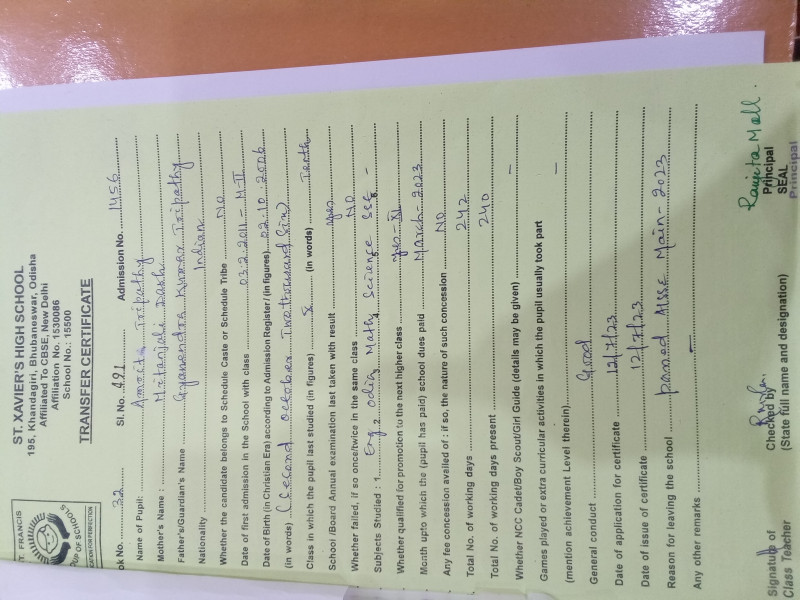 ST. FRANCIS
UP OF SCHOOLS
EDUCATION FOR PERFECTION
ST. XAVIER'S HIGH SCHOOL
195, Khandagiri, Bhubaneswar, Odisha
Affiliated To CBSE, New Delhi
Affiliation No. 1530086
School No.: 15500
TRANSFER CERTIFICATE
ok No. 32 Sl. No. 491 Admission No. 1456
Name of Pupil: Amrita Tripathy
Mother's Name : Mitanjali Dash
Father's/Guardian's Name Gyanendra Kumar Tripathy
Nationality Indian
Whether the candidate belongs to Schedule Caste or Schedule Tribe No
Date of first admission in the School with class 03.2.2011 - M-II
Date of Birth (in Christian Era) according to Admission Register/(in figures) 02.10.2006
(in words) (Second october Two thousand Six)
Class in which the pupil last studied (in figures) X (in words) Tenth
School /Board Annual examination last taken with result yes
Whether failed, if so once/twice in the same class No
Subjects Studied : 1. Eng 2. Odia, Math, Science SSc. -
Whether qualified for promotion to the next higher class yes - XI
Month upto which the (pupil has paid) school dues paid March - 2023
Any fee concession availed of : if so, the nature of such concession No
Total No. of working days 242
Total No. of working days present 240
Whether NCC Cadet/Boy Scout/Girl Guide (details may be given) -
Games played or extra curricular activities in which the pupil usually took part
(mention achievement Level therein) -
General conduct Good
Date of application for certificate 12/7/23
Date of issue of certificate 12/7/23
Reason for leaving the school passed AISSE Main - 2023
Any other remarks -
Signature of
Class Teacher
Checked by
(State full name and designation)
Ranjeeta Mall.
Principal
SEAL
Principal